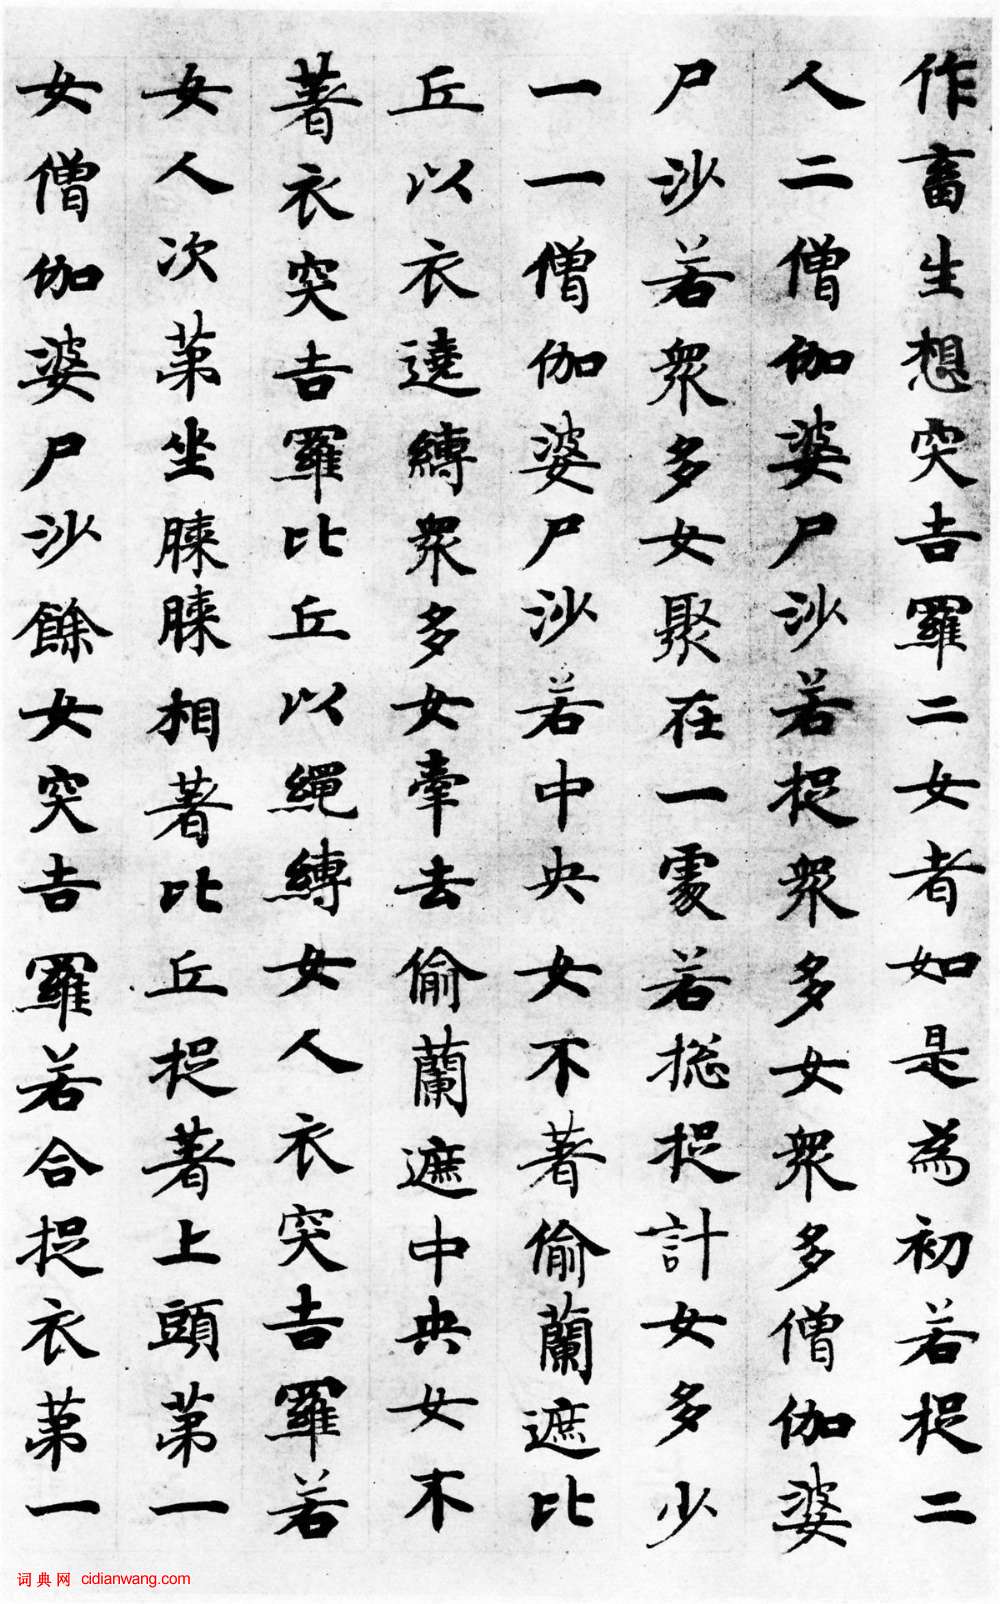 作畜生想突吉羅二女者如是為初若捉二
人二僧伽婆尸沙若捉眾多女眾多僧伽婆
尸沙若眾多女聚在一處若捴捉計女多少
一一僧伽婆尸沙若中央女不著偷蘭遮比
丘以衣遶縛眾多女牽去偷蘭遮中央女不
著衣突吉羅比丘以繩縛女人衣突吉羅若
女人次第坐膝膝相著比丘捉著上頭第一
女僧伽婆尸沙餘女突吉羅若合捉衣第一
词典网 cidianwang.com